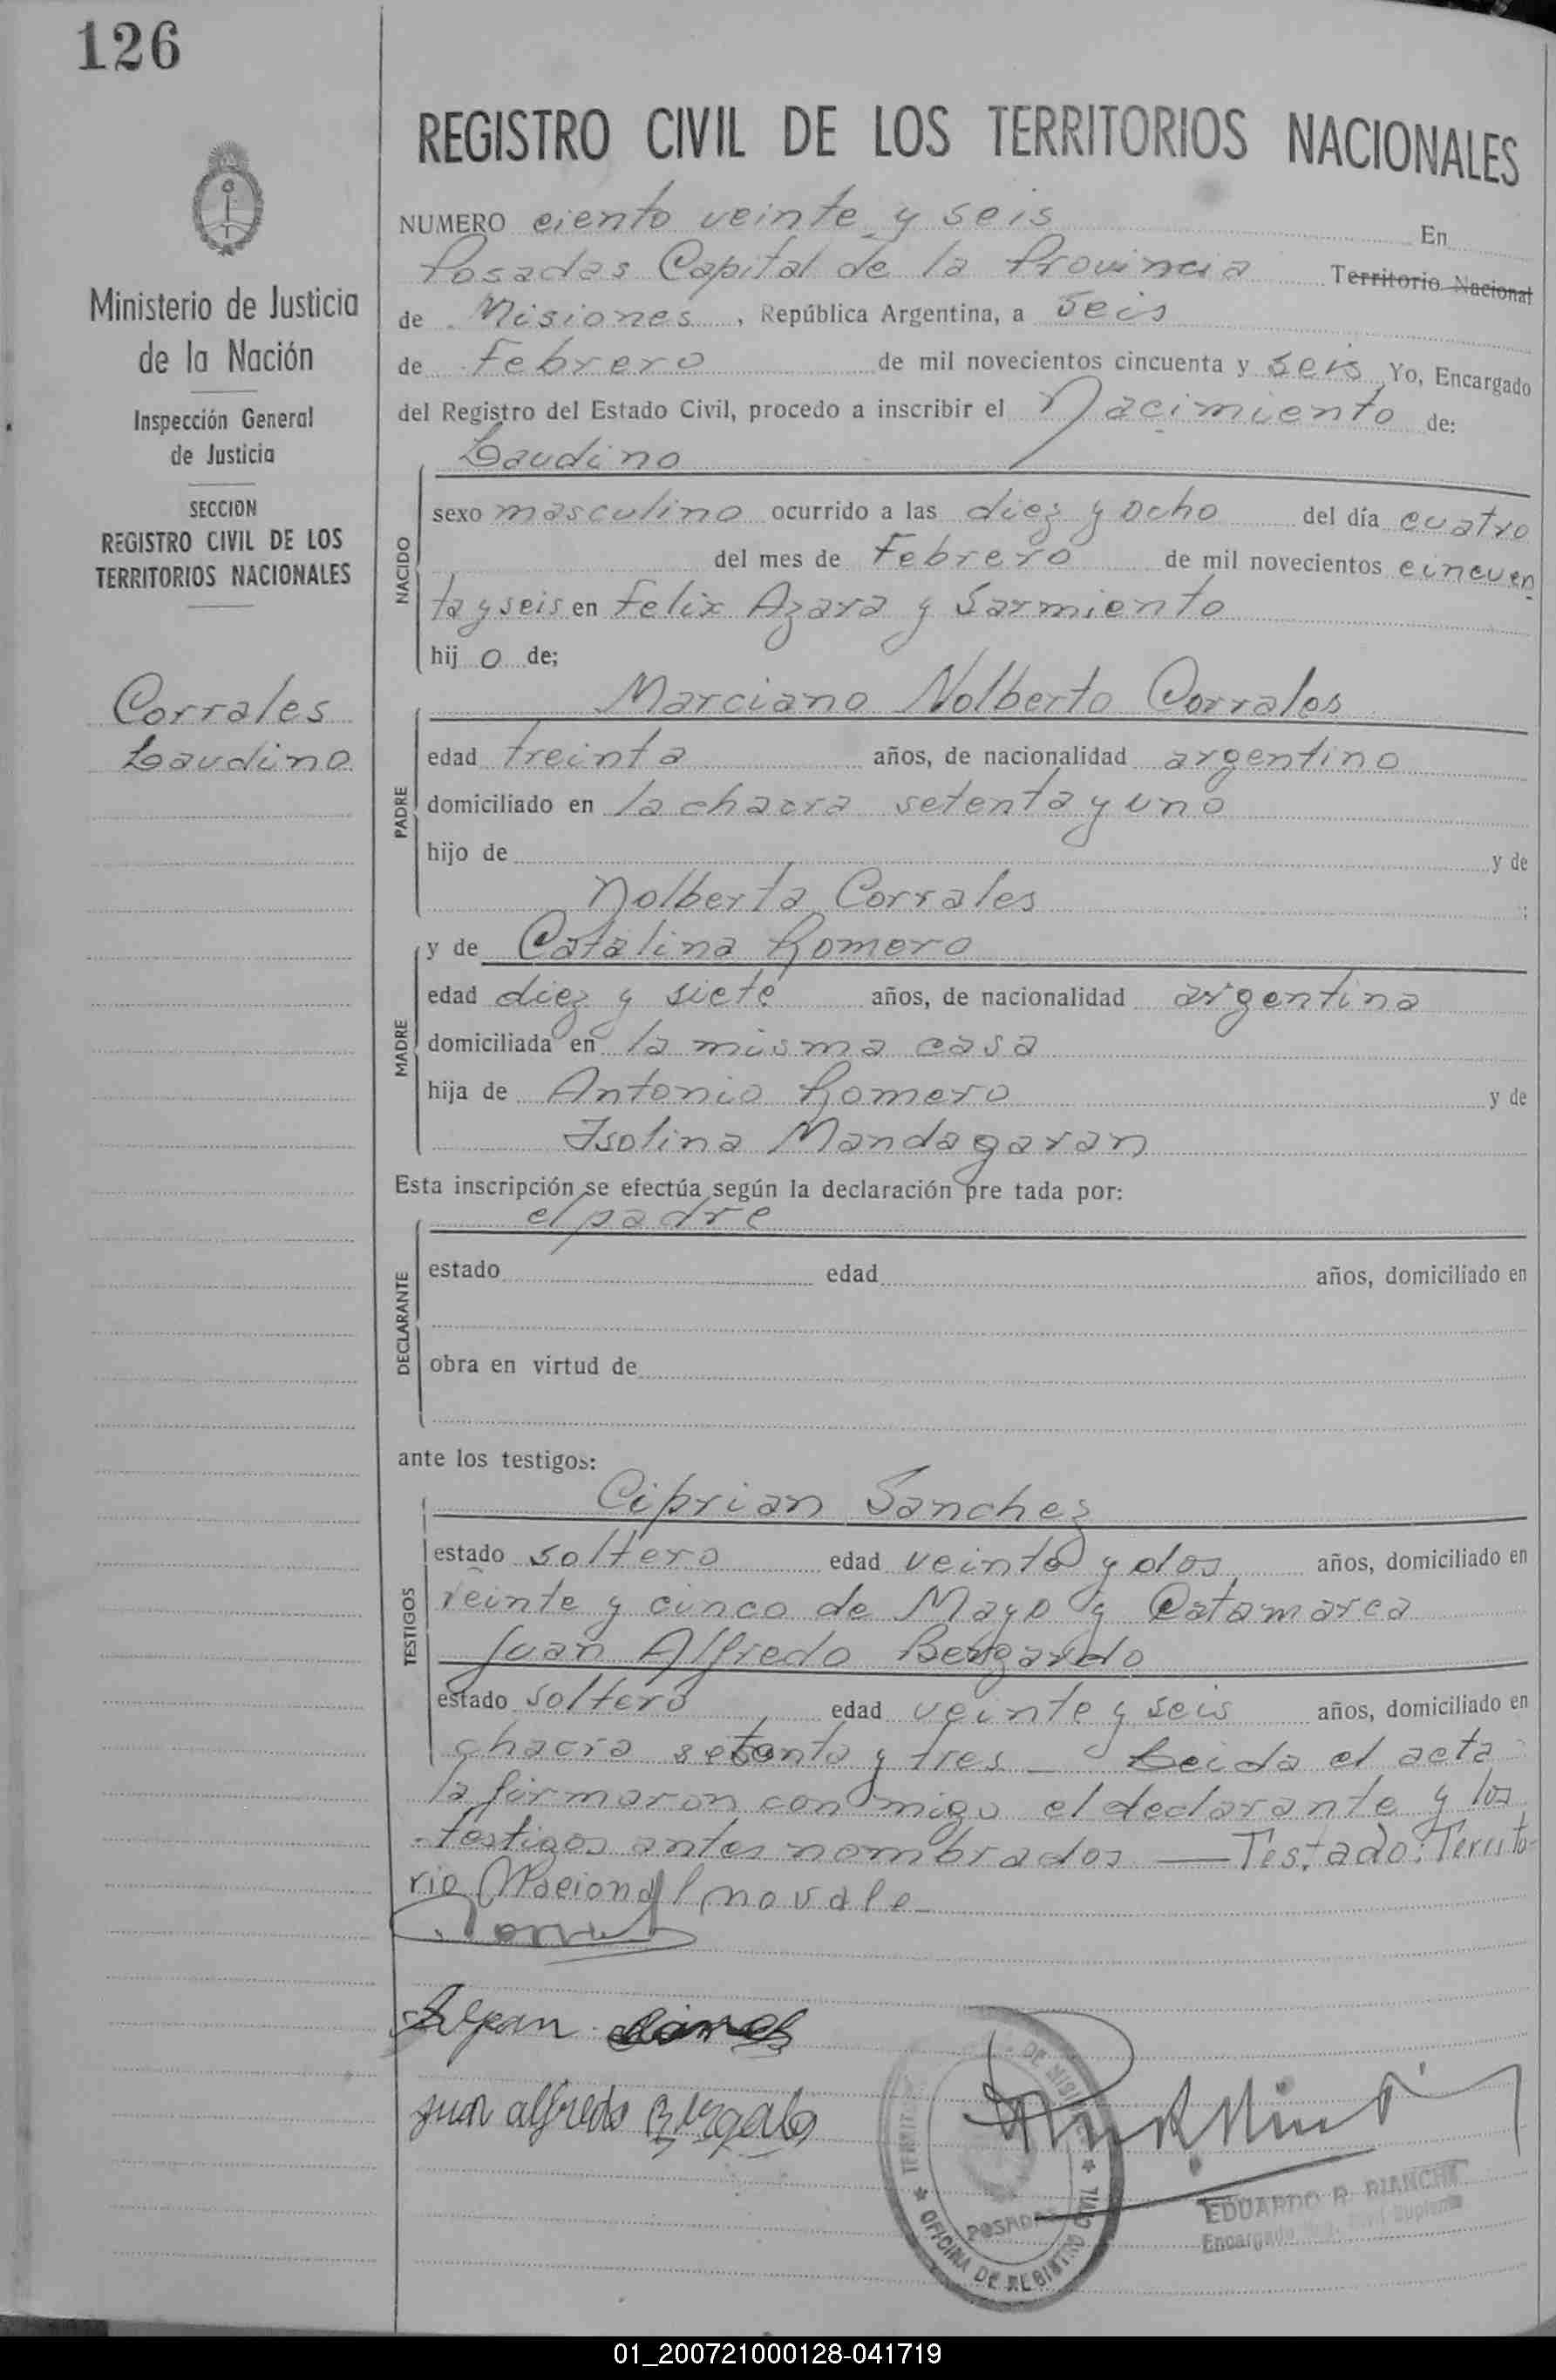 126
REGISTRO CIVIL DE LOS TERRITORIOS NACIONALES
Ministerio de Justicia
de la Nación
Inspección General
de Justicia
SECCION
REGISTRO CIVIL DE LOS
TERRITORIOS NACIONALES
Corrales
Laudino
NUMERO ciento veinte y seis En
Posadas Capital de la Provincia Territorio Nacional
de Misiones, República Argentina, a seis
de Febrero de mil novecientos cincuenta y seis Yo, Encargado
del Registro del Estado Civil, procedo a inscribir el Nacimiento de:
Laudino
NACIDO
sexo masculino ocurrido a las diez y ocho del día cuatro
del mes de Febrero de mil novecientos cincuen
ta y seis en Felix Azara y Sarmiento
hij o de;
Marciano Nolberto Corrales
PADRE
edad treinta años, de nacionalidad argentino
domiciliado en la chacra setenta y uno
hijo de y de
Nolberta Corrales ;
y de Catalina Romero
MADRE
edad diez y siete años, de nacionalidad argentina
domiciliada en la misma casa
hija de Antonio Romero y de
Isolina Mandagaran
Esta inscripción se efectúa según la declaración pre tada por:
el padre
DECLARANTE
estado edad años, domiciliado en
obra en virtud de
ante los testigos:
Ciprian Sanchez
TESTIGOS
estado soltero edad veinte y dos años, domiciliado en
veinte y cinco de Mayo y Catamarca
Juan Alfredo
estado soltero edad veinte y seis años, domiciliado en
chacra setenta y tres — Leida el acta
la firmaron con migo el declarante y los
testigos antes nombrados — Testado: Territo-
rio Nacional no vale
Juan alfredo
POSADAS
OFICINA DE REGISTRO CIVIL
EDUARDO R. BIANCHI
Encargado Suplente
01_200721000128-041719